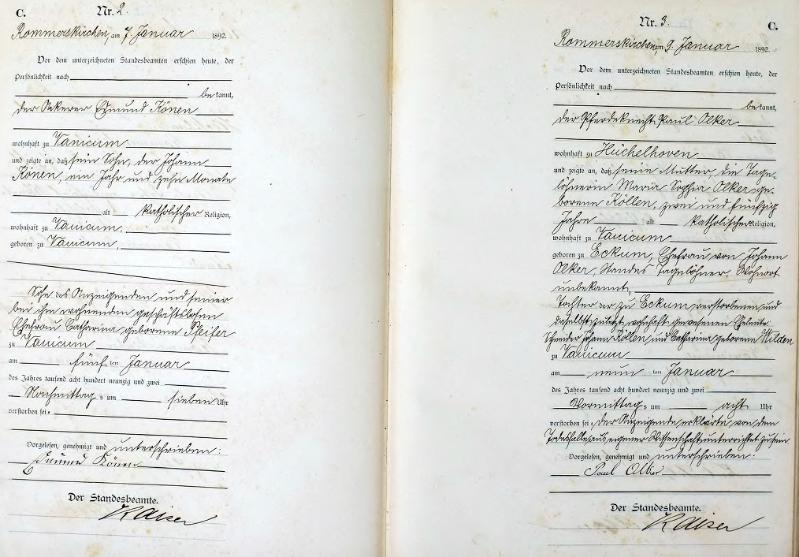 C.
Nr. 2.
Rommerskirchen, am 7. Januar 1892.
Vor dem unterzeichneten Standesbeamten erschien heute, der
Persönlichkeit nach
bekannt,
der Ackerer Edmund Könen
wohnhaft zu Vanicum
und zeigte an, daß sein Sohn, der Johann
Könen, ein Jahr und zehn Monate
alt katholischer Religion,
wohnhaft zu Vanicum,
geboren zu Vanicum,
Sohn des Anzeigenden und seiner
bei ihm wohnenden geschäftslosen
Ehefrau Catharina, geborenen Pfeifer
zu Vanicum
am fünf ten Januar
des Jahres tausend acht hundert neunzig und zwei
Nachmittags um sieben Uhr
verstorben sei.
Vorgelesen, genehmigt und unterschrieben:
Edmund Könen
Der Standesbeamte.
Kaiser
Nr. 3.
C.
Rommerskirchen, am 9. Januar 1892.
Vor dem unterzeichneten Standesbeamten erschien heute, der
Persönlichkeit nach
bekannt,
der Pferdeknecht Paul Olker
wohnhaft zu Hüchelhoven
und zeigte an, daß seine Mutter, die Tage-
löhnerin Maria Sophia Olker ge-
borenen Köllen, zwei und fünfzig
Jahre alt katholischer Religion,
wohnhaft zu Vanicum
geboren zu Eckum, Ehefrau von Johann
Olker, Standes Tagelöhner, Wohnort
unbekannt,
Tochter der zu Eckum verstorbenen und
daselbst zuletzt wohnhaft gewesenen Eheleute
Johann Köllen und Catharina geborenen Wilden
zu Vanicum
am neun ten Januar
des Jahres tausend acht hundert neunzig und zwei
Vormittags um acht Uhr
verstorben sei, der Anzeigende erklärte, von dem
Todesfalle aus eigener Wissenschaft unterrichtet zu sein
Vorgelesen, genehmigt und unterschrieben:
Paul Olker
Der Standesbeamte.
Kaiser